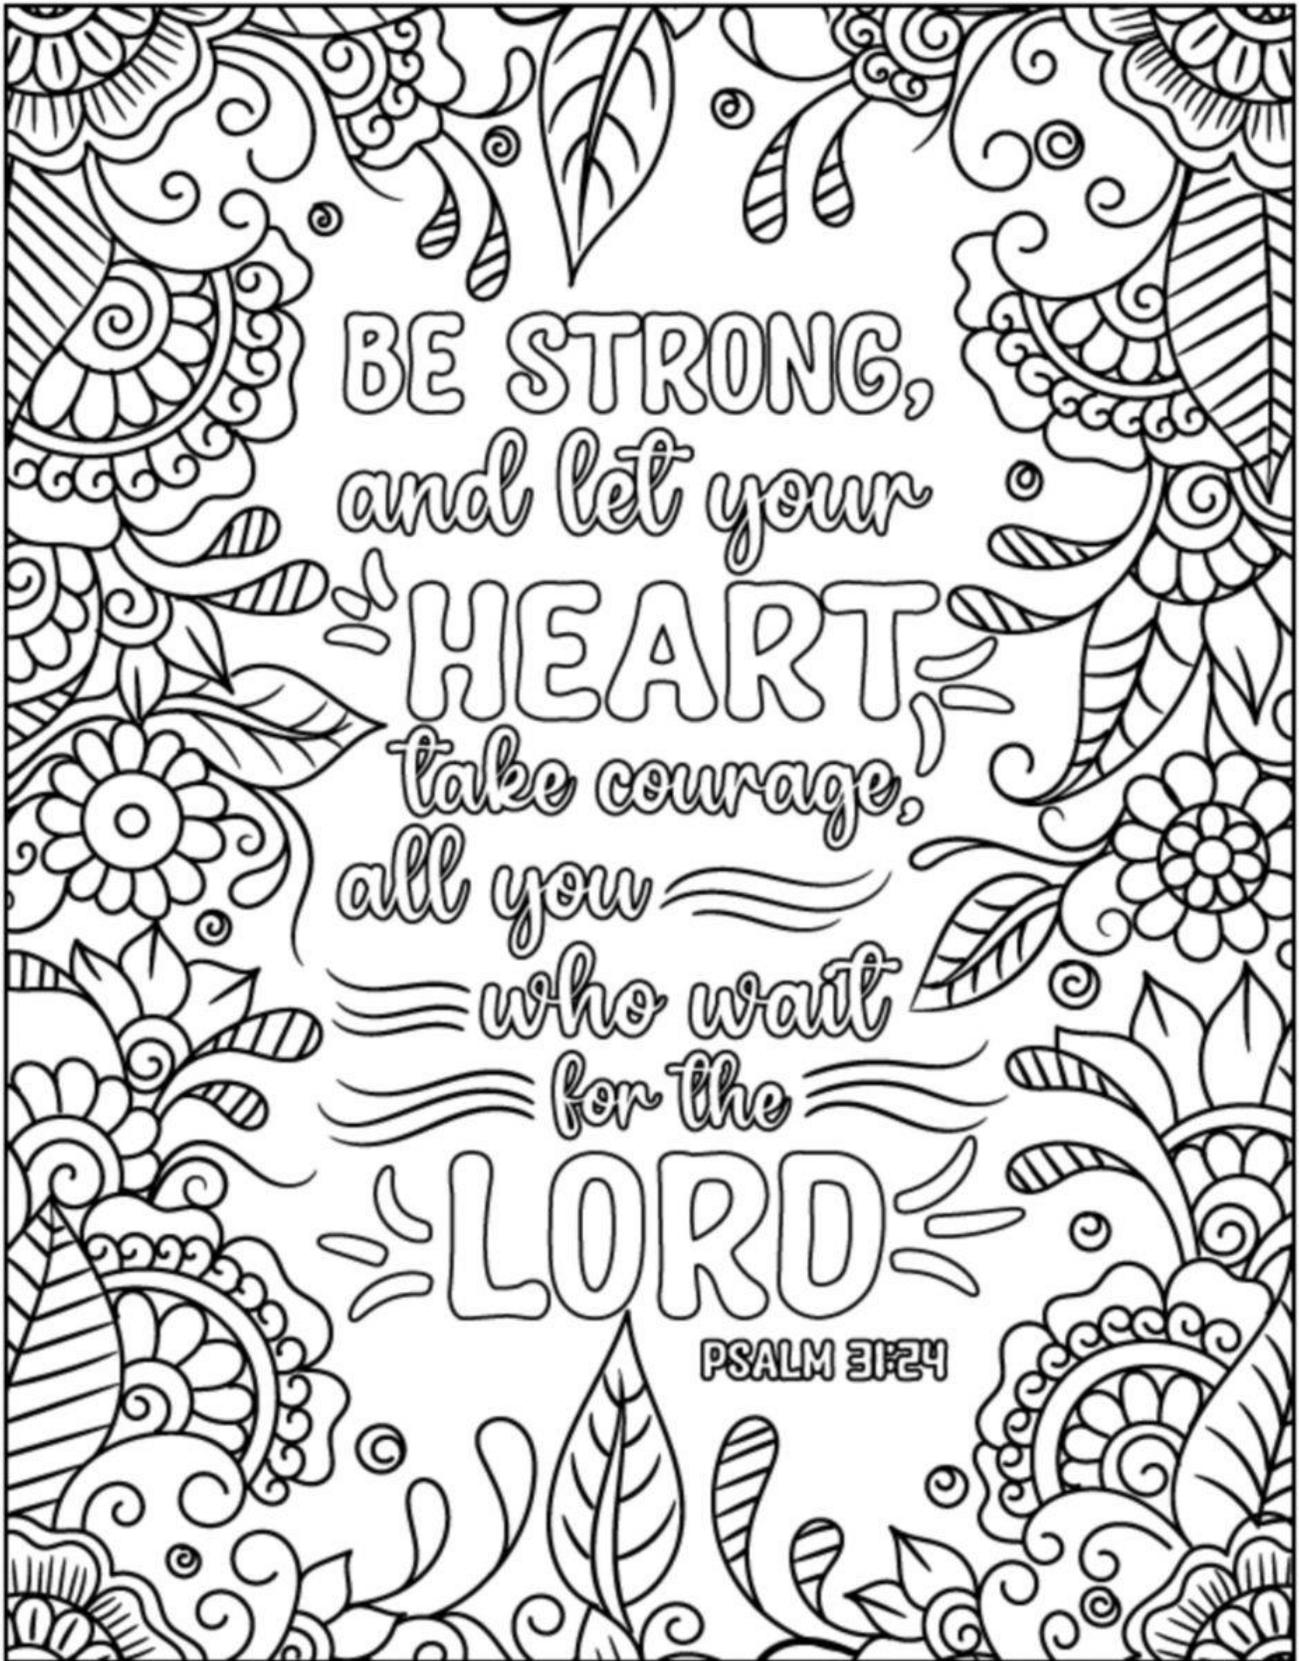 BE STRONG,
and let your
HEART
take courage,
all you
who wait
for the
LORD
PSALM 31:24